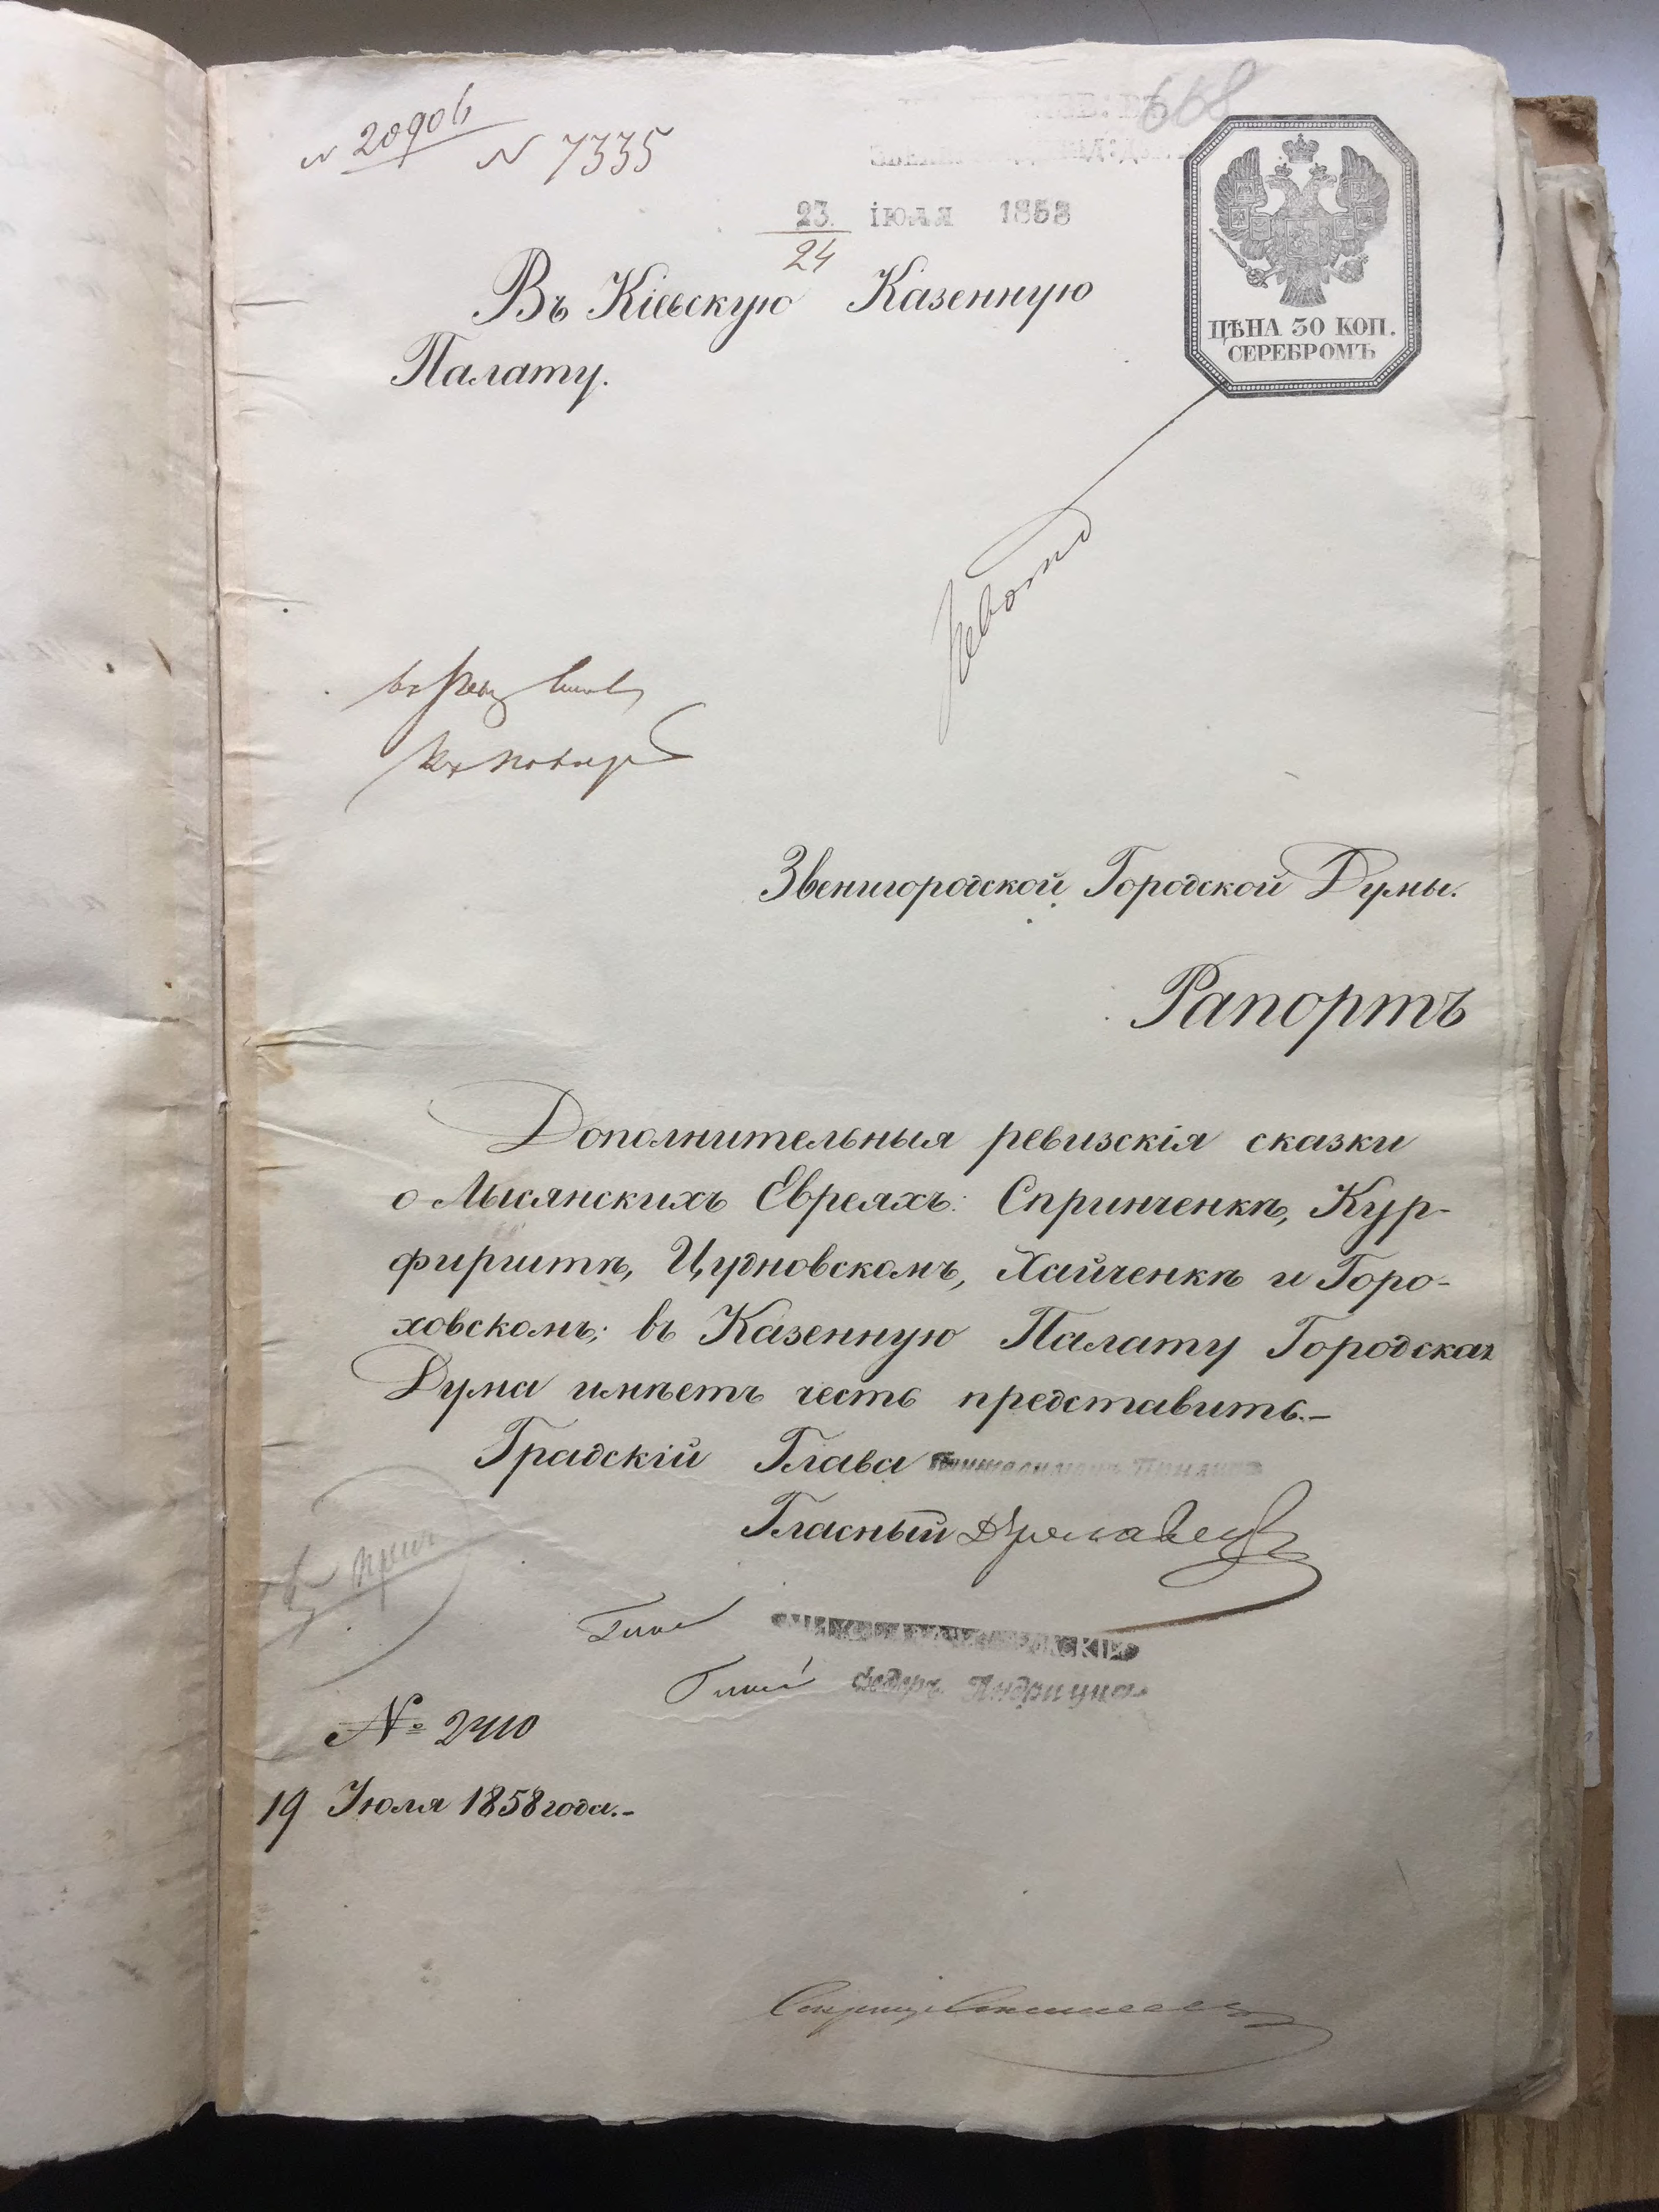 № 20906
№ 7335
668
23. іюля 1858
24
ЦѢНА 30 КОП.
СЕРЕБРОМЪ
Въ Кіевскую Казенную
Палату.
Звенигородской Городской Думы.
Рапортъ
Дополнительныя ревизскія сказки
о Лысянскихъ Евреяхъ: Спринченкѣ, Кур-
фирштѣ, Цудновскомъ, Хайченкѣ и Горо-
ховскомъ; въ Казенную Палату Городская
Дума имѣетъ честь представить.-
Градскій Глава
Гласный
Федоръ
№ 2410
19 Іюля 1858 года.-